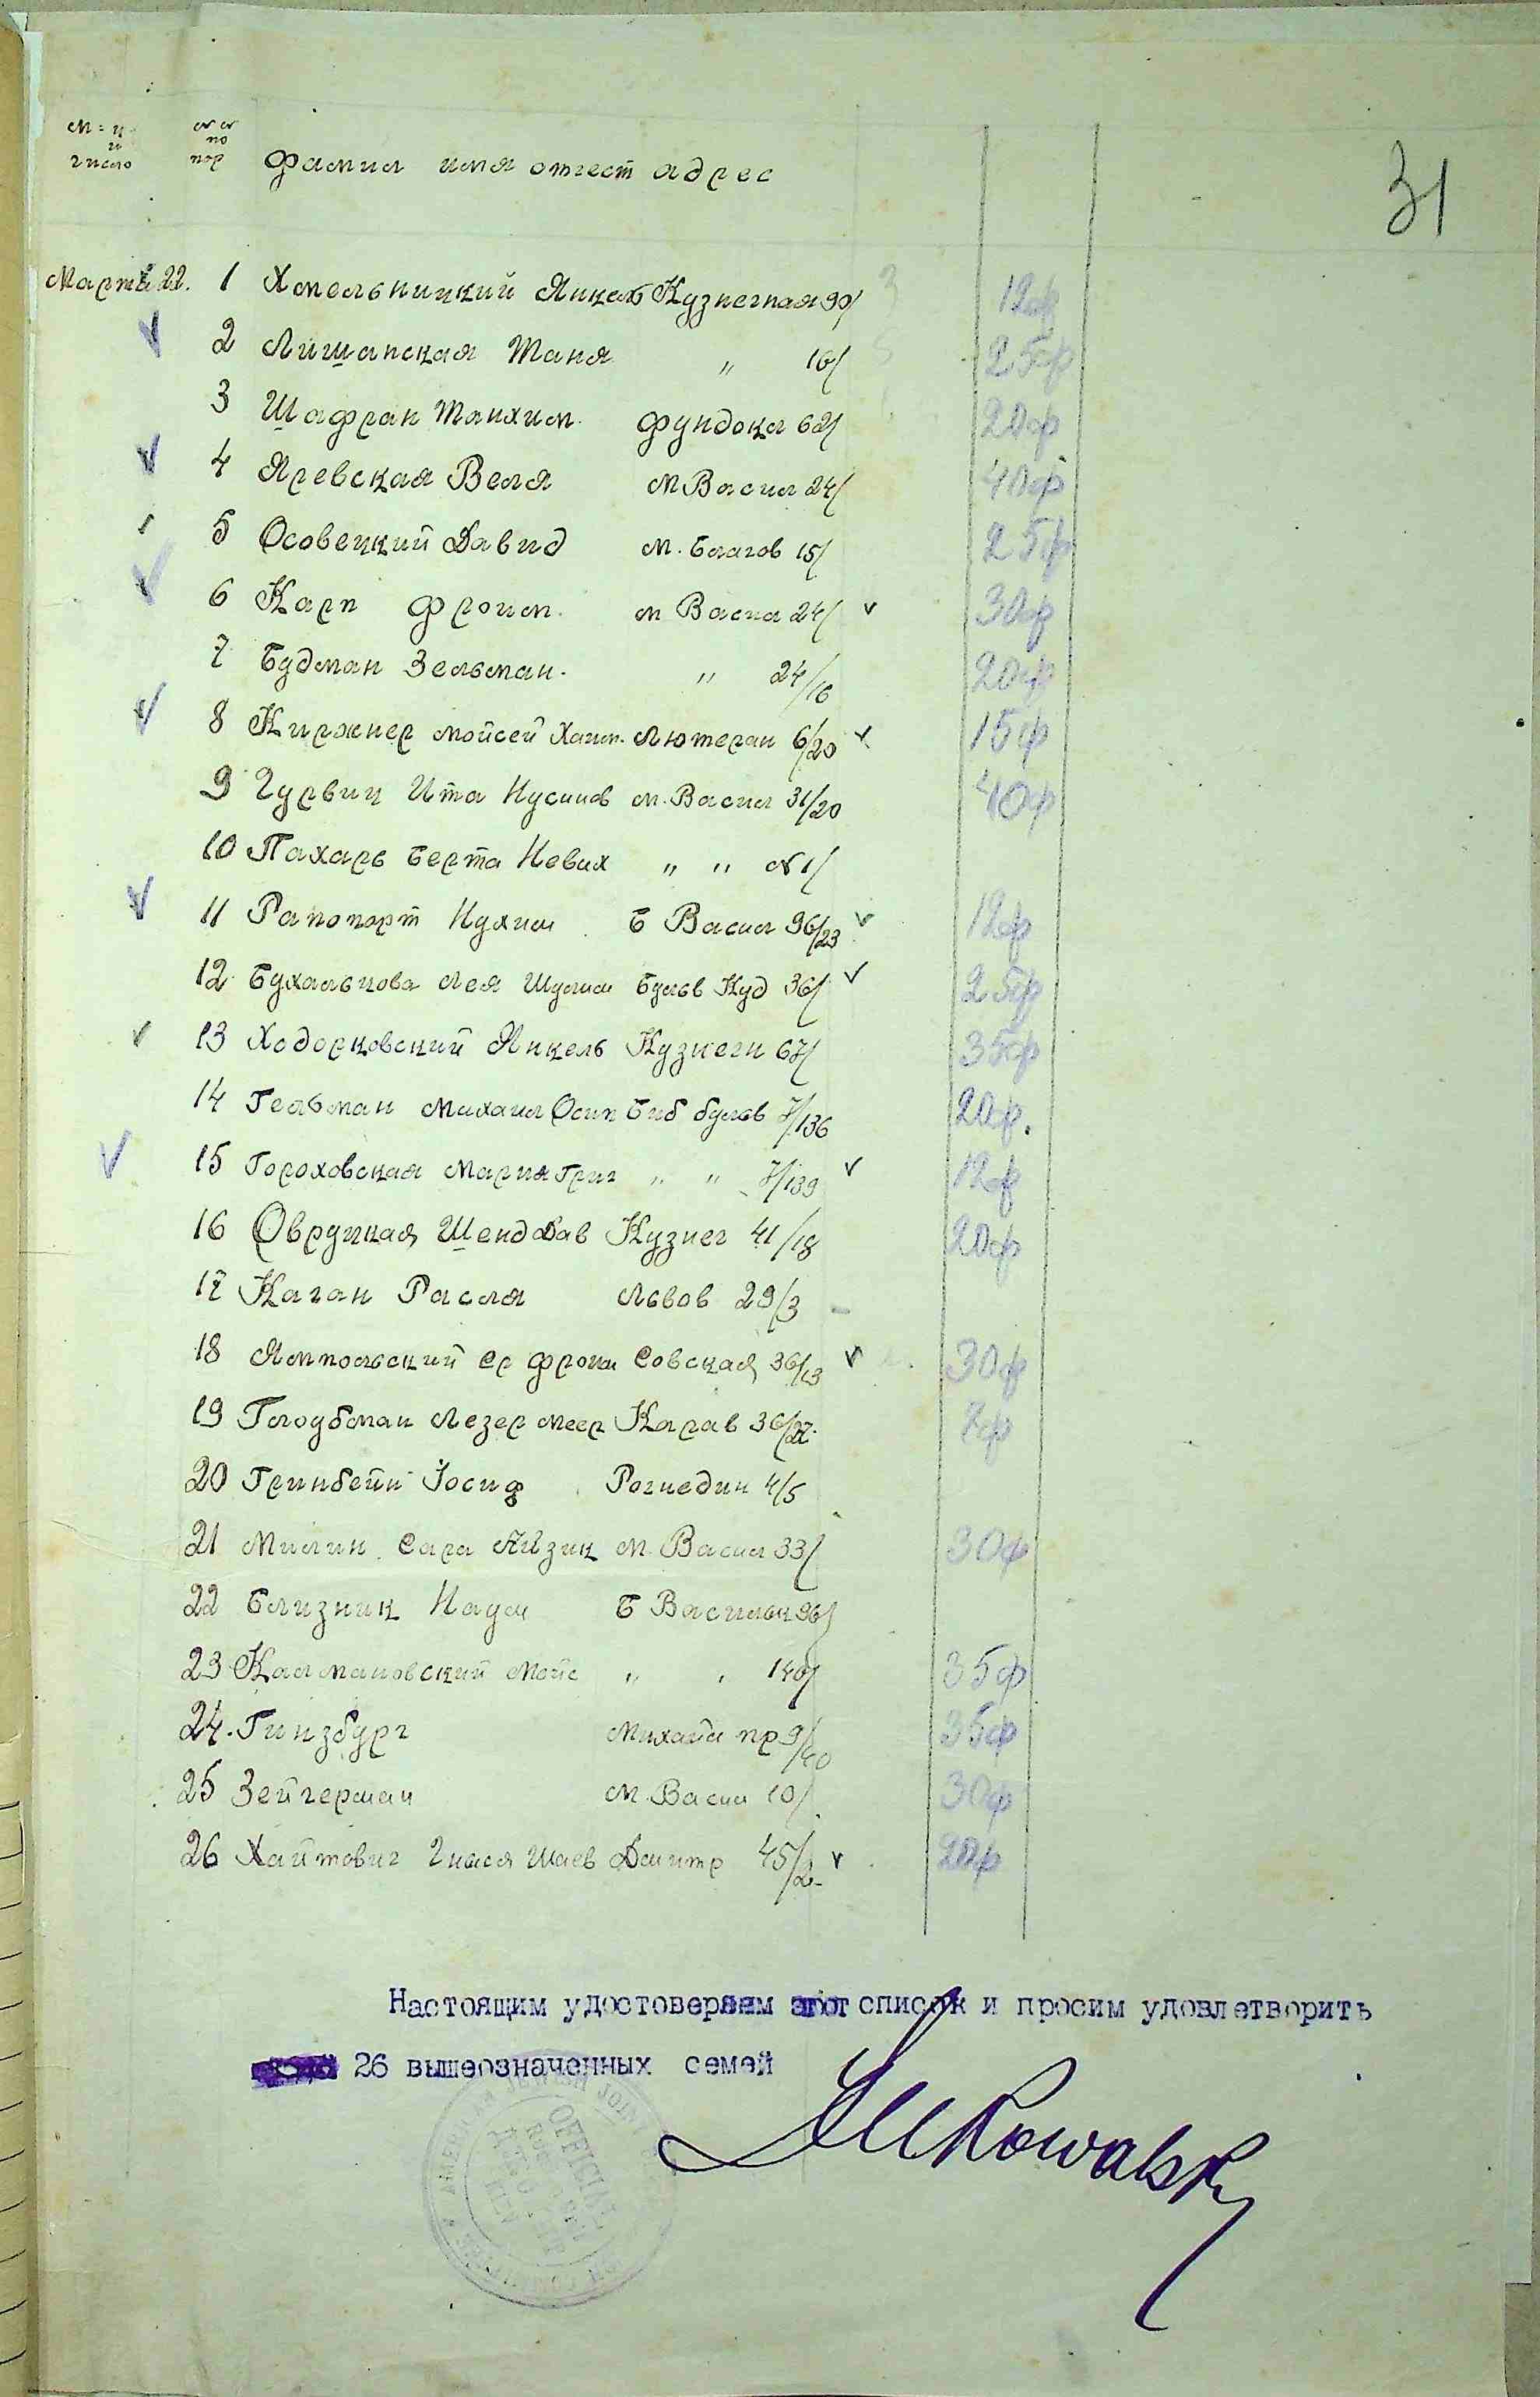 31
М-ц и число №№ по пор Фамил имя отчест адрес
Марта 22. 1 Хмельницкий Янкель Кузнечная 99/ 12ф
2 Лишанская Таня " 16/ 25ф
3 Шафран Танхим. Фундокл 62/ 20ф
4 Яревская Веля М Васил 24/ 40ф
5 Осовецкий Давид М. Благов 15/ 25ф
6 Карп Фроим. М Васил 24/ 30ф
7 Будман Зельман. " 24/16 20ф
8 Киржнер Мойсей Хаим. Лютеран 6/20 15ф
9 Гурвиц Ита Нусинов М. Васил 31/20 40ф
10 Пахарь Берта Невах " " № 1/
11 Рапопорт Нухим Б Васил 96/23 12ф
12 Бухальцова Лея Шулим Бульв Куд 36/ 25ф
13 Ходорковский Янкель Кузнечн 67/ 35ф
14 Гельман Михаил Осип Биб бульв 7/136 20ф.
15 Гороховская Мария Григ " " 7/139 12ф
16 Овруцкая Шенд Дав Кузнеч 41/18 20ф
17 Каган Расля Львов 29/3
18 Ямпольский Ср Фроим Совская 36/13 30ф
19 Голодбман Лезер Меер Карав 36/27. 7ф
20 Гринбейн Иосиф Рогнедин 4/5
21 Милин Сара Айзик М. Васил 33/ 30ф
22 Близник Наум Б Васильк 96/
23 Калмановский Мойс " " 140/ 35ф
24. Гинзбург Михайл пр 9/40 35ф
25 Зейгерман М. Васил 10/ 30ф
26 Хайтович Гнася Шаев Дмитр 45/2 20ф
Настоящим удостоверяем этот список и просим удовлетворить
26 вышеозначенных семей
Kowalsky
AMERICAN JEWISH JOINT
OFFICIAL